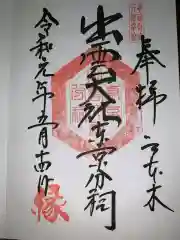 奉拝
六本木
出雲大社東京分祠
令和元年五月十四日
縁